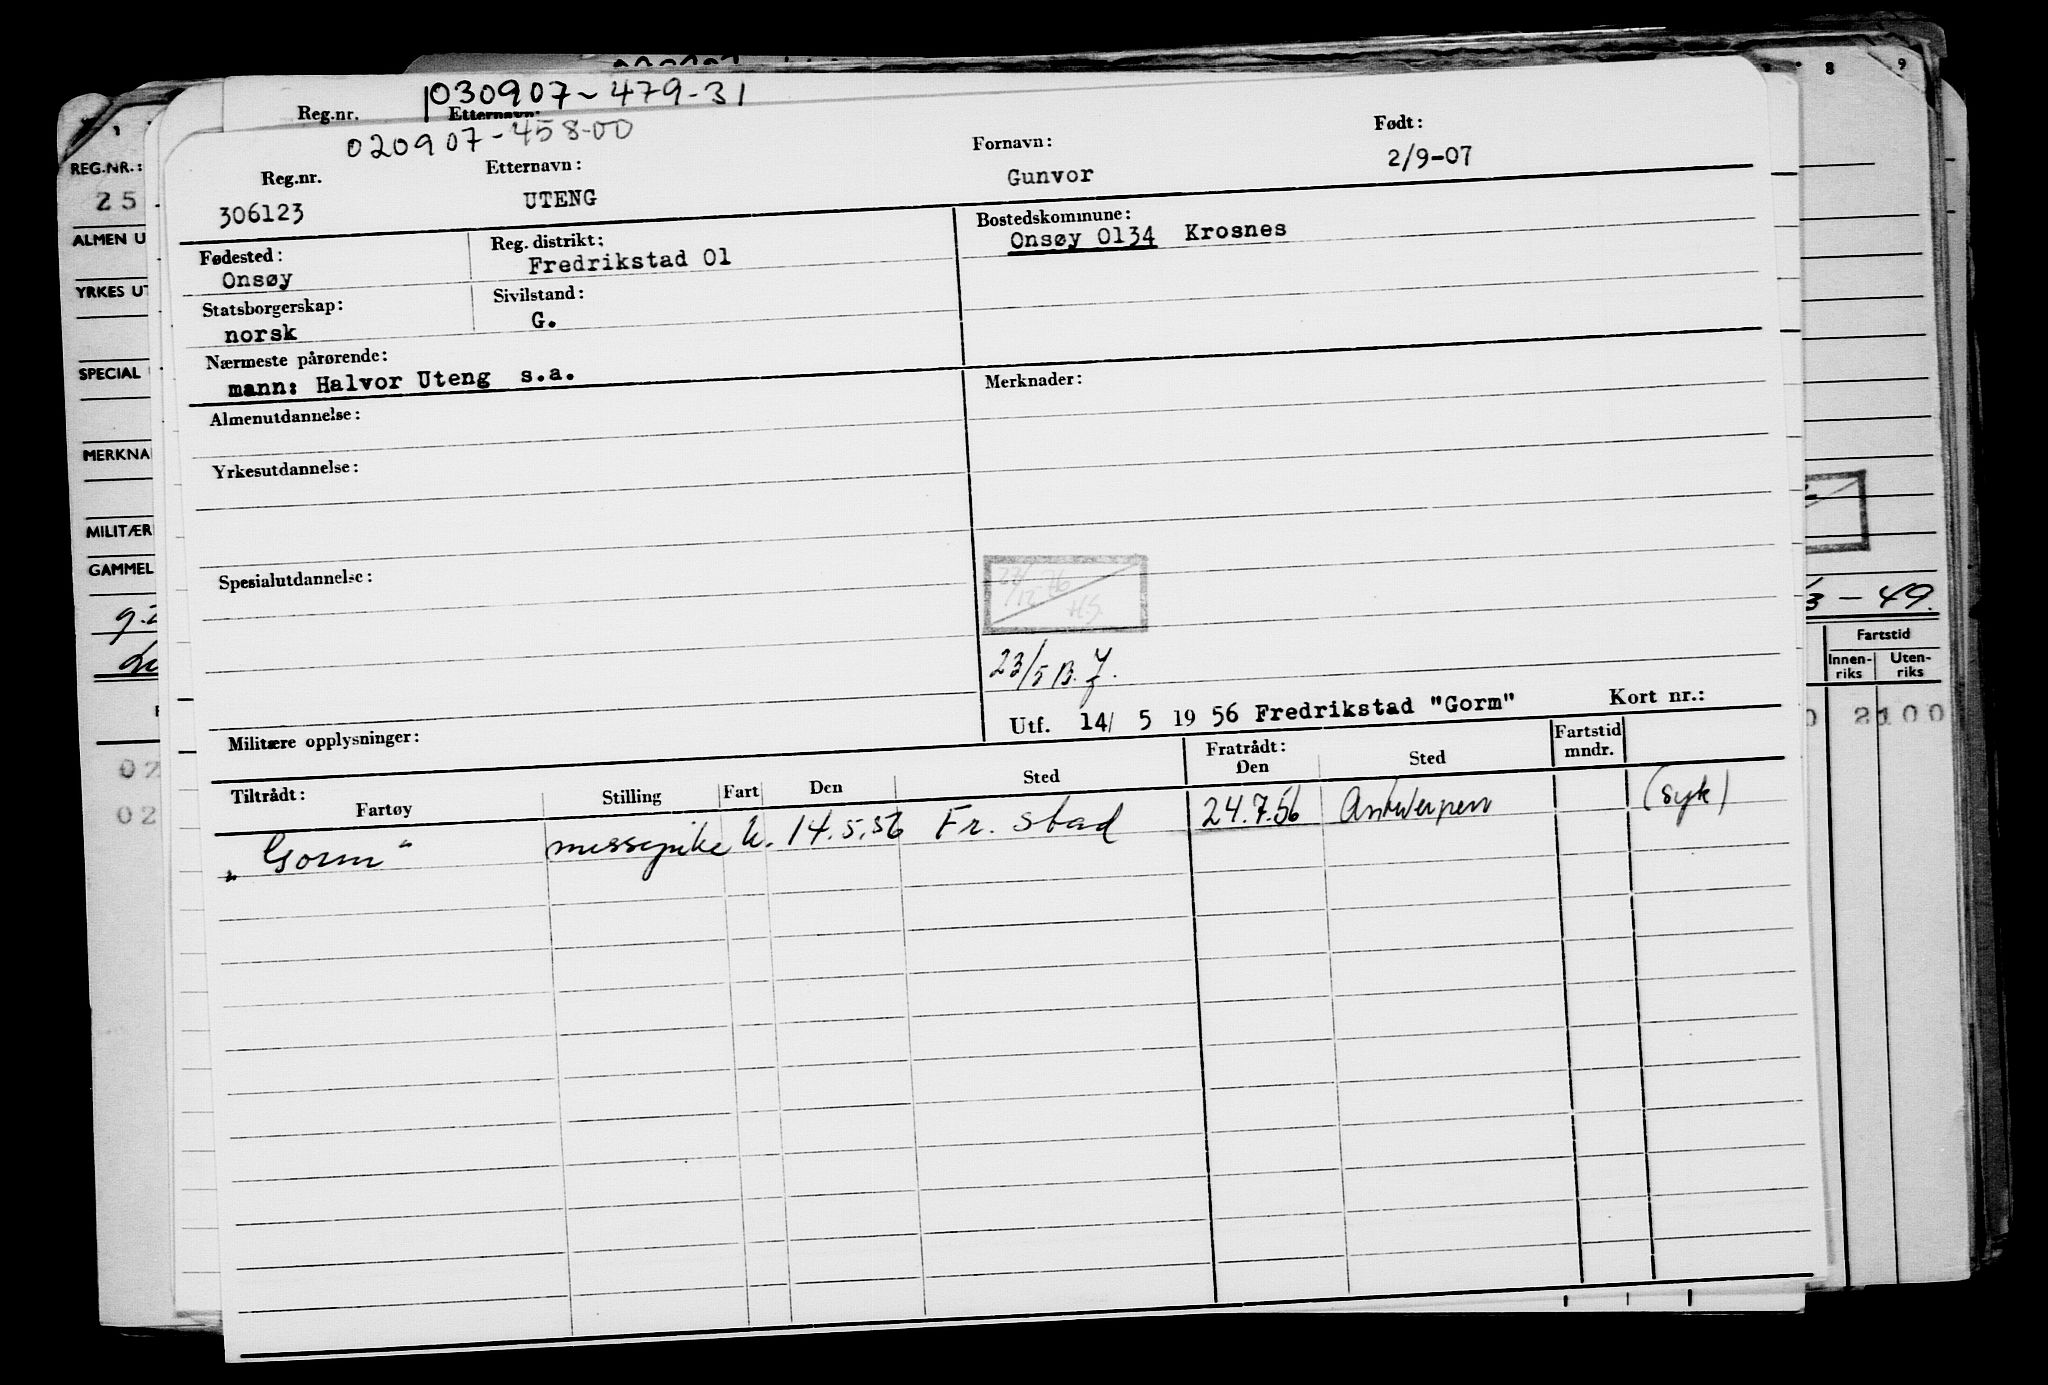 030907-479-31
Reg.nr. Etternavn:
020907-458-00
Reg.nr. Etternavn: Fornavn: Født:
306123 UTENG Gunvor 2/9-07
Fødested: Reg. distrikt: Bostedskommune:
Onsøy Fredrikstad 01 Onsøy 0134 Krosnes
Statsborgerskap: Sivilstand:
norsk G.
Nærmeste pårørende:
mann: Halvor Uteng s.a. Merknader:
Almenutdannelse:
Yrkesutdannelse:
Spesialutdannelse:
23/12 76
HS
23/5 B.J.
Militære opplysninger: Utf. 14/ 5 19 56 Fredrikstad "Gorm" Kort nr.:
Tiltrådt: Fratrådt: Fartstid
Fartøy Stilling Fart Den Sted Den Sted mndr.
"Gorm" messepike u. 14.5.56 Fr.stad 24.7.56 Antwerpen (syk)
REG.NR.:
25
ALMEN U
YRKES UT
SPECIAL
MERKNA
MILITÆR
GAMMEL
02
02
8 9
3 - 49.
Fartstid
Innen-riks Uten-riks
0 2100